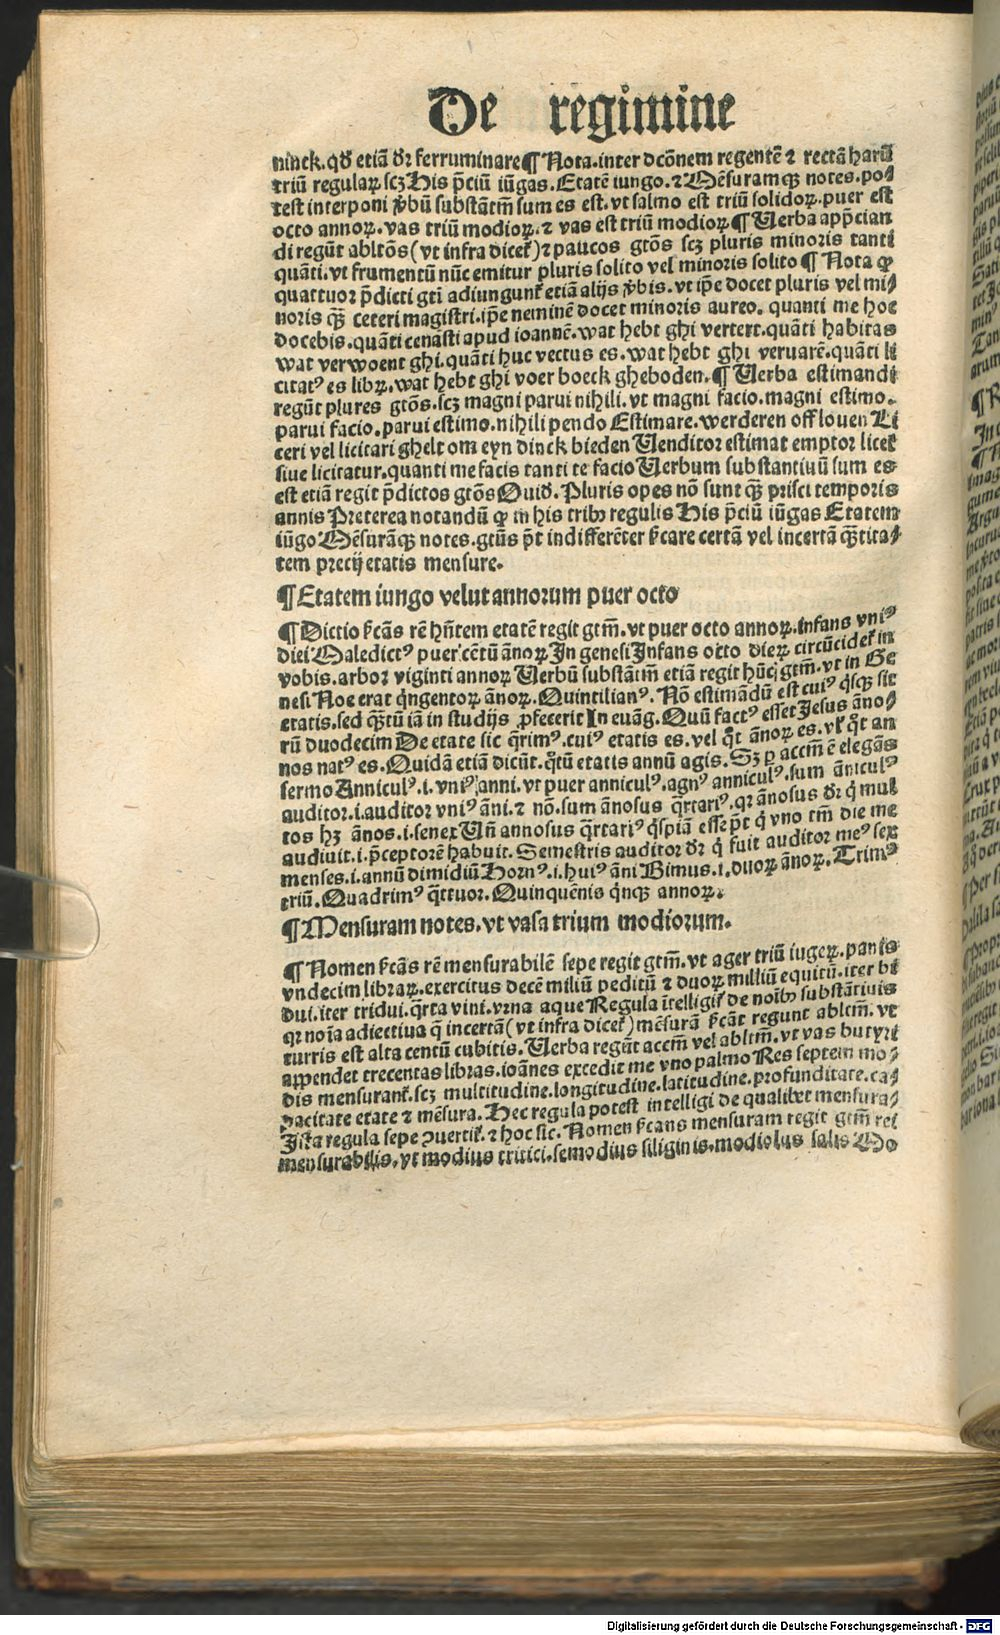 De regimine
ninck. qđ etiã dr̃ ferruminare ¶ Nota. inter dcõnem regentẽ ⁊ rectã harũ
triũ regulaꝝ scꝫ His p̃ciũ iũgas. Etatẽ iungo. ⁊ Mẽsuramqꝫ notes. po⸗
test interponi v̾bũ substãtm̃ sum es est. vt salmo est triũ solidoꝝ. puer est
octo annoꝝ. vas triũ modioꝝ. ⁊ vas est triũ modioꝝ ¶ Uerba app̃cian
di regũt abltõs (vt infra dicet᷑) ⁊ paucos gtõs scꝫ pluris minoris tanti
quãti. vt frumentũ nũc emitur pluris solito vel minoris solito ¶ Nota ꝙ
quattuor p̃dicti gti̅ adiungunt᷑ etiã alijs v̾bis. vt ip̃e docet pluris vel mi⸗
noris qꝫ̃ ceteri magistri. ip̃e neminẽ docet minoris aureo. quanti me hoc
docebis. quãti cenasti apud ioannẽ. wat hebt ghi vertert. quãti habitas
wat verwoent ghi. quãti huc vectus es. wat hebt ghi veruarẽ. quãti li
citatꝰ es libꝝ. wat hebt ghi voer boeck gheboden. ¶ Uerba estimandi
regũt plures gtõs. scꝫ magni parui nihili. vt magni facio. magni estimo.
parui facio. parui estimo. nihili pendo Estimare. werderen off louen Li
ceri vel licitari ghelt om eyn dinck bieden Uenditor estimat emptor licet᷑
siue licitatur. quanti me facis tanti te facio Uerbum substantiuũ sum es
est etiã regit p̃dictos gtõs Ouid. Pluris opes nõ sunt qꝫ̃ prisci temporis
annis Preterea notandũ ꝙ in his tribꝫ regulis His p̃ciũ iũgas Etatem
iũgo Mẽsurãqꝫ notes. gtũs p̃t indifferẽter ſ̾care certã vel incertã qꝫ̃tita⸗
tem precij etatis mensure.
¶ Etatem iungo velut annorum puer octo
¶ Dictio ſ̾cãs rẽ hñtem etatẽ regit gtm̃. vt puer octo annoꝝ. infans vniꝰ
diei Maledictꝰ puer cẽtũ ãnoꝝ In genesi Infans octo dieꝝ circũcidet᷑ in
vobis. arbor viginti annoꝝ Uerbũ substãtm̃ etiã regit hũc gtm̃. vt in Ge
nesi Noe erat q̇ngentoꝝ ãnoꝝ. Quintilianꝰ. Nõ estimãdũ est cuiꝰ q̇sqꝫ sit
etatis. sed qꝫ̃tũ iã in studijs ꝓfecerit In euãg. Quũ factꝰ esset Jesus ãno⸗
rũ duodecim De etate sic q̃rimꝰ. cuiꝰ etatis es. vel qͦt ãnoꝝ es. vl̾ qͦt an
nos natꝰ es. Quidã etiã dicũt. q̃tũ etatis annũ agis. Sꝫ ꝑ accm̃ ẽ elegãs
sermo Anniculꝰ. i. vniꝰ anni. vt puer anniculꝰ. agnꝰ anniculꝰ. sum ãniculꝰ
auditor. i. auditor vniꝰ ãni. ⁊ nõ. sum ãnosus q̃rtariꝰ. qꝛ ãnosus dr̃ q̇ mul
tos hꝫ ãnos. i. senex Uñ annosus q̃rtariꝰ q̇spiã esse p̃t q̇ vno tm̃ die me
audiuit. i. p̃ceptorẽ habuit. Semestris auditor dr̃ q̇ fuit auditor meꝰ sex
menses. i. annũ dimidiũ Hornꝰ. i. huiꝰ ãni Bimus. i. duoꝝ ãnoꝝ. Trimꝰ
triũ. Quadrimꝰ q̃ttuor. Quinquẽnis q̇nqꝫ annoꝝ.
¶ Mensuram notes. vt vasa trium modiorum.
¶ Nomen ſ̾cãs rẽ mensurabilẽ sepe regit gtm̃. vt ager triũ iugeꝝ. panis
vndecim libraꝝ. exercitus decẽ miliũ peditũ ⁊ duoꝝ milliũ equitũ. iter bi
dui. iter tridui. q̃rta vini. vrna aque Regula ĩtelligit᷑ de noĩbꝫ substãtiuis
qꝛ noĩa adiectiua q̃ incertã (vt infra dicet᷑) mẽsurã ſ̾cãt regunt abltm̃. vt
turris est alta centũ cubitis. Uerba regũt accm̃ vel abltm̃. vt vas butyri
appendet trecentas libras. ioãnes excedit me vno palmo Res septem mo⸗
dis mensurant᷑. scꝫ multitudine. longitudine. latitudine. profunditate. ca⸗
pacitate etate ⁊ mẽsura. Hec regula potest intelligi de qualibet mensura⸗
Ista regula sepe ꝯuertit᷑. ⁊ hoc sic. Nomen ſ̾cans mensuram regit gtm̃ rei
mensurabilis. vt modius tritici. semodius siliginis. modiolus salis Mo
Digitalisierung gefördert durch die Deutsche Forschungsgemeinschaft - DFG